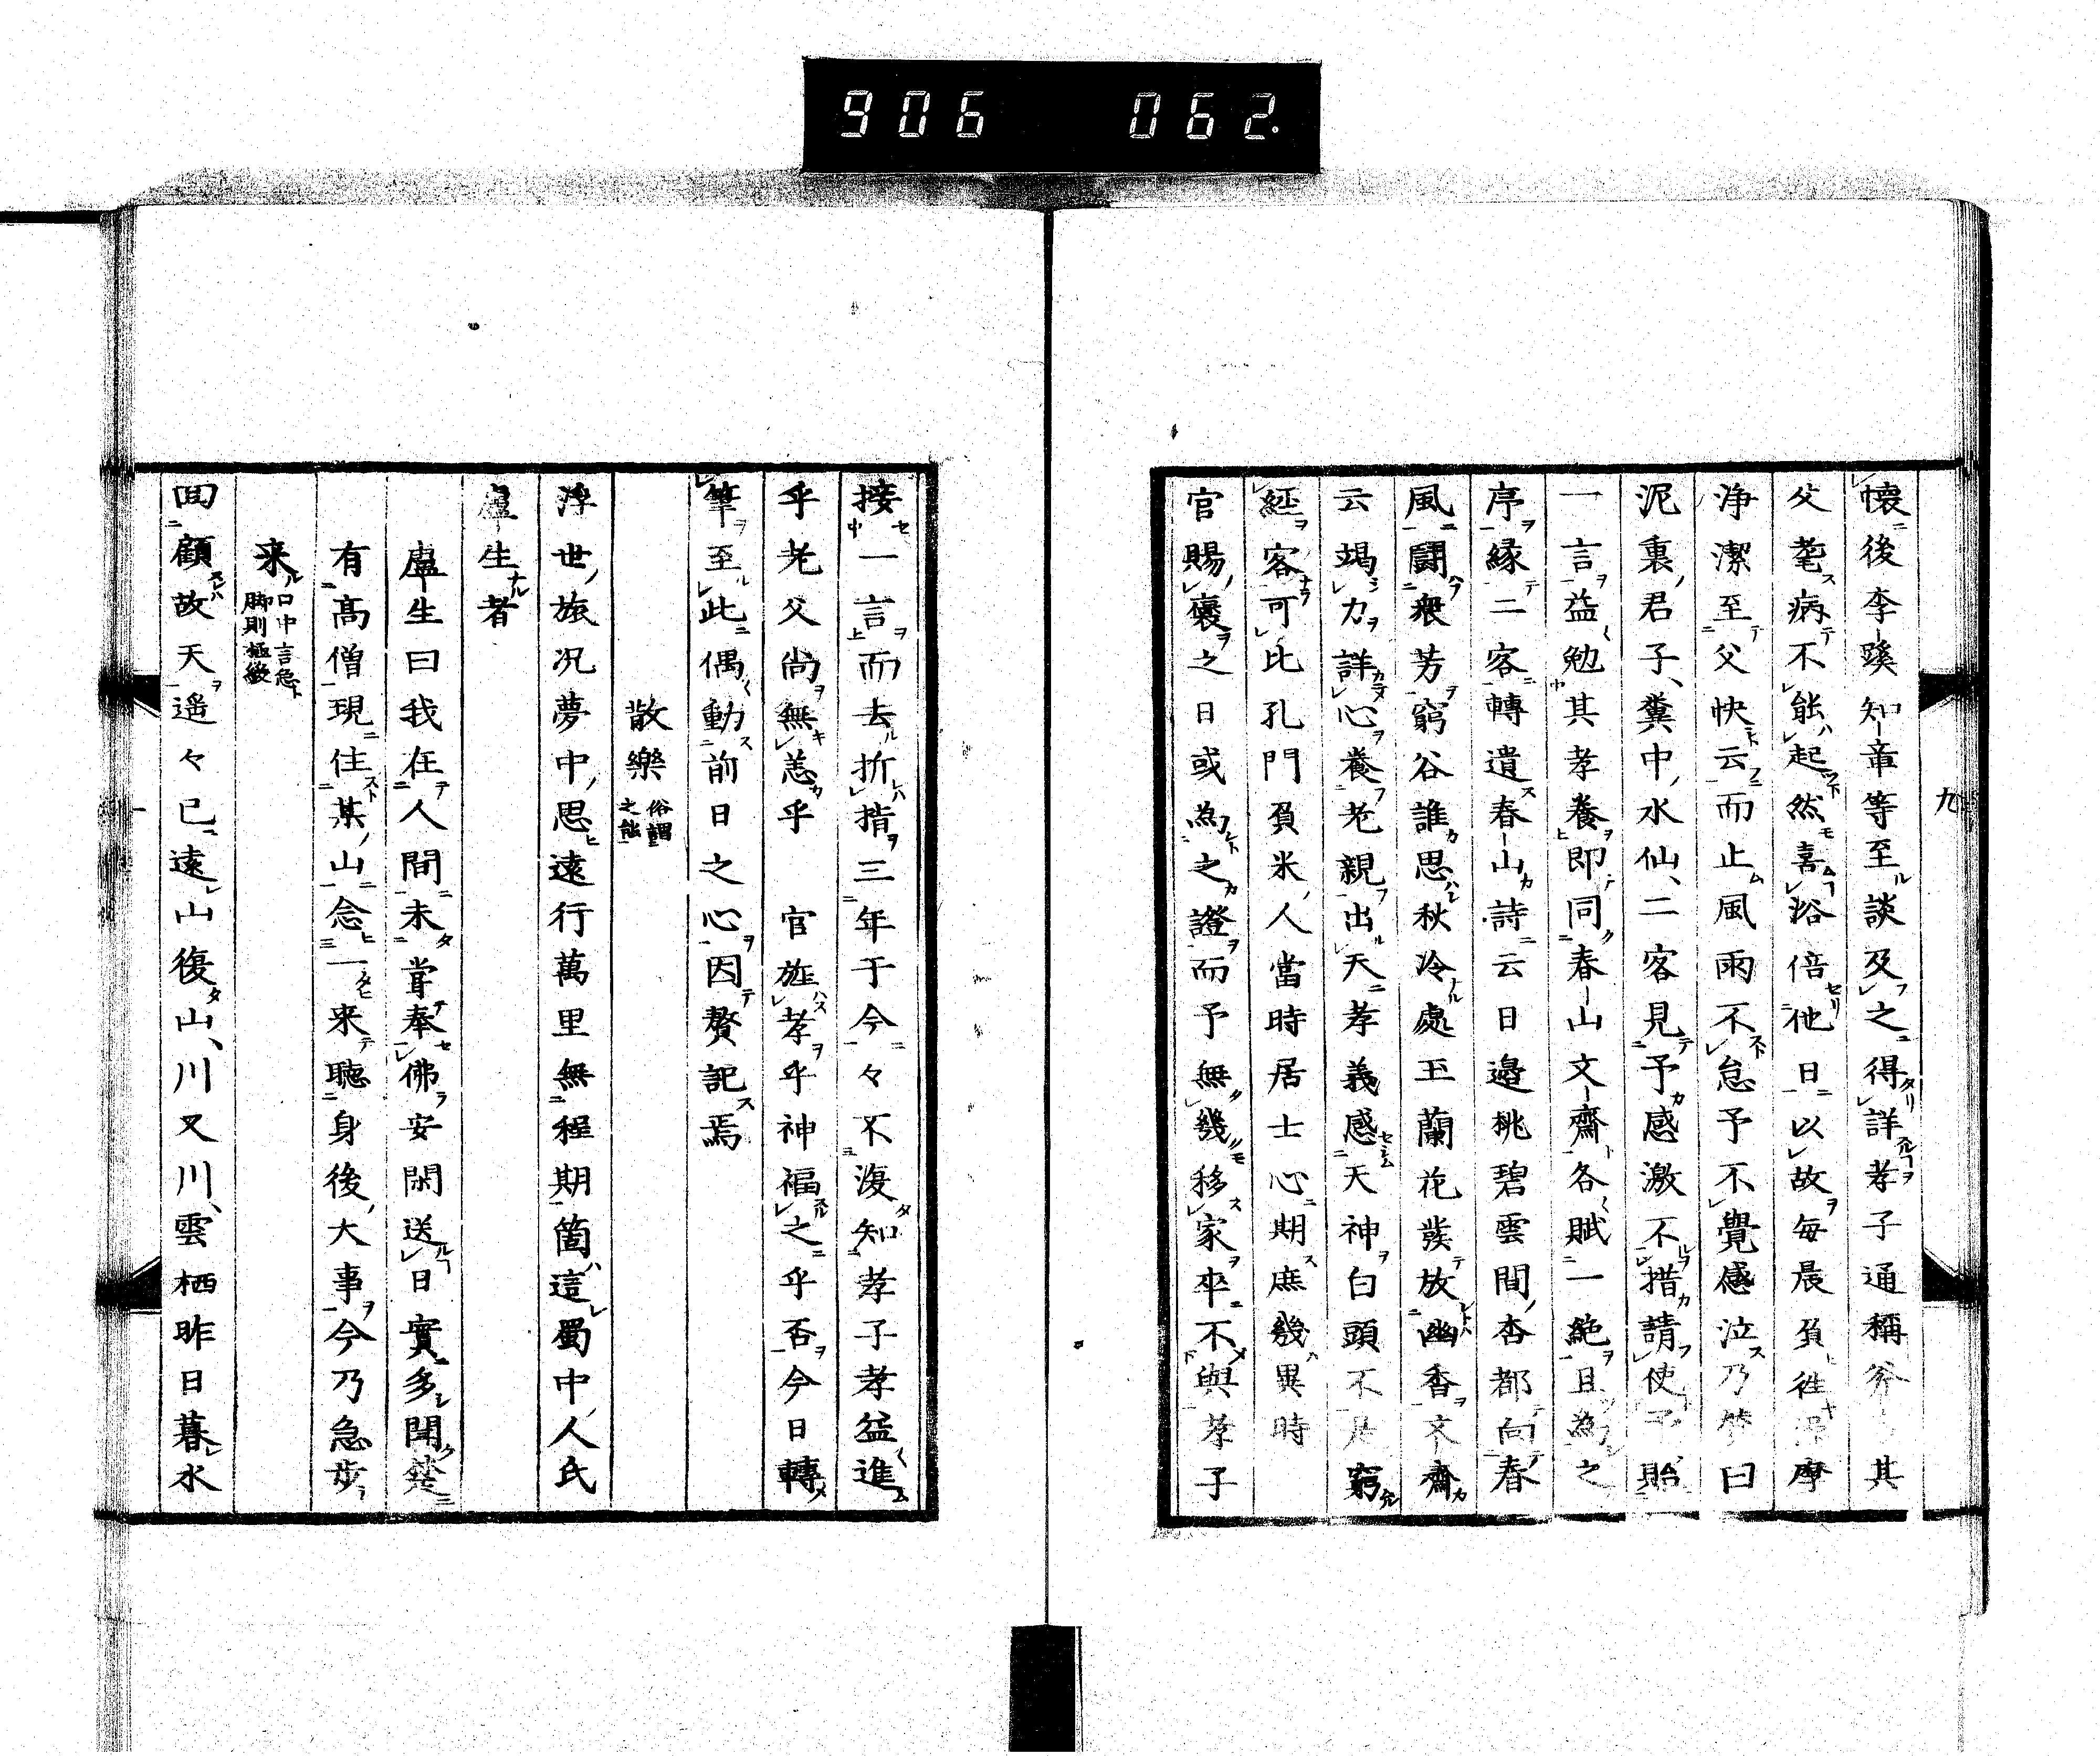 906 062.
九
懐後李蹊知章等至談及之得詳孝子通稱其
父耄病不能起然喜浴倍他日以故毎晨負徃摩
浄潔至父快云而止風雨不怠予不覺感泣乃曰
泥裏君子、糞中水仙、二客見予感激不措請使貽
一言益勉其孝養即同春山文齋各賦一絶且為之
序縁二客轉遺春山詩云日邉桃碧雲間杏都向春
風鬪衆芳窮谷誰思秋冷處玉蘭花發放幽香文齋
云竭力詳心養老親出天孝義感天神白頭不窮
經客可比孔門負米人當時居士心期庶幾異時
官賜褒之日或為之證而予無幾移家卒不與孝子
接一言而去折指三年于今々不復知孝子孝益進
乎老父尚無恙乎 官旌孝乎神福之乎否今日轉
筆至此偶動前日之心因贅記焉
散樂 俗謂之能
浮世旅况夢中思遠行萬里無程期箇這蜀中人氏
盧生者
盧生曰我在人間未甞奉佛安閑送日實多聞楚
有髙僧現住某山念一来聴身後大事今乃急歩
来 口中言急脚則極緩
回顧故天遥々已遠山復山、川又川、雲栖昨日暮水